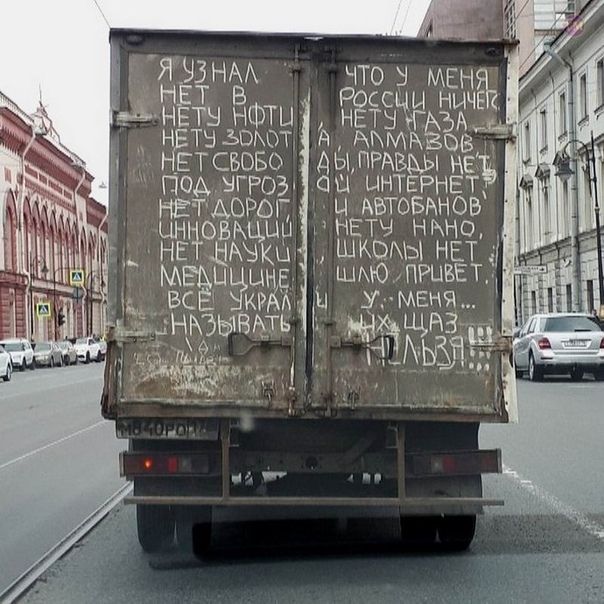 Я УЗНАЛ ЧТО У МЕНЯ
НЕТ В РОССИИ НИЧЕГ
НЕТУ НФТИ НЕТУ ГАЗА
НЕТУ ЗОЛОТ А АЛМАЗОВ
НЕТ СВОБО ДЫ, ПРАВДЫ НЕТ
ПОД УГРОЗ ОЙ ИНТЕРНЕТ
НЕТ ДОРОГ И АВТОБАНОВ
ИННОВАЦИЙ НЕТУ НАНО,
НЕТ НАУКИ ШКОЛЫ НЕТ
МЕДИЦИНЕ ШЛЮ ПРИВЕТ.
ВСЁ УКРАЛ И У МЕНЯ...
НАЗЫВАТЬ ИХ ЩАЗ
НЕЛЬЗЯ!!!...